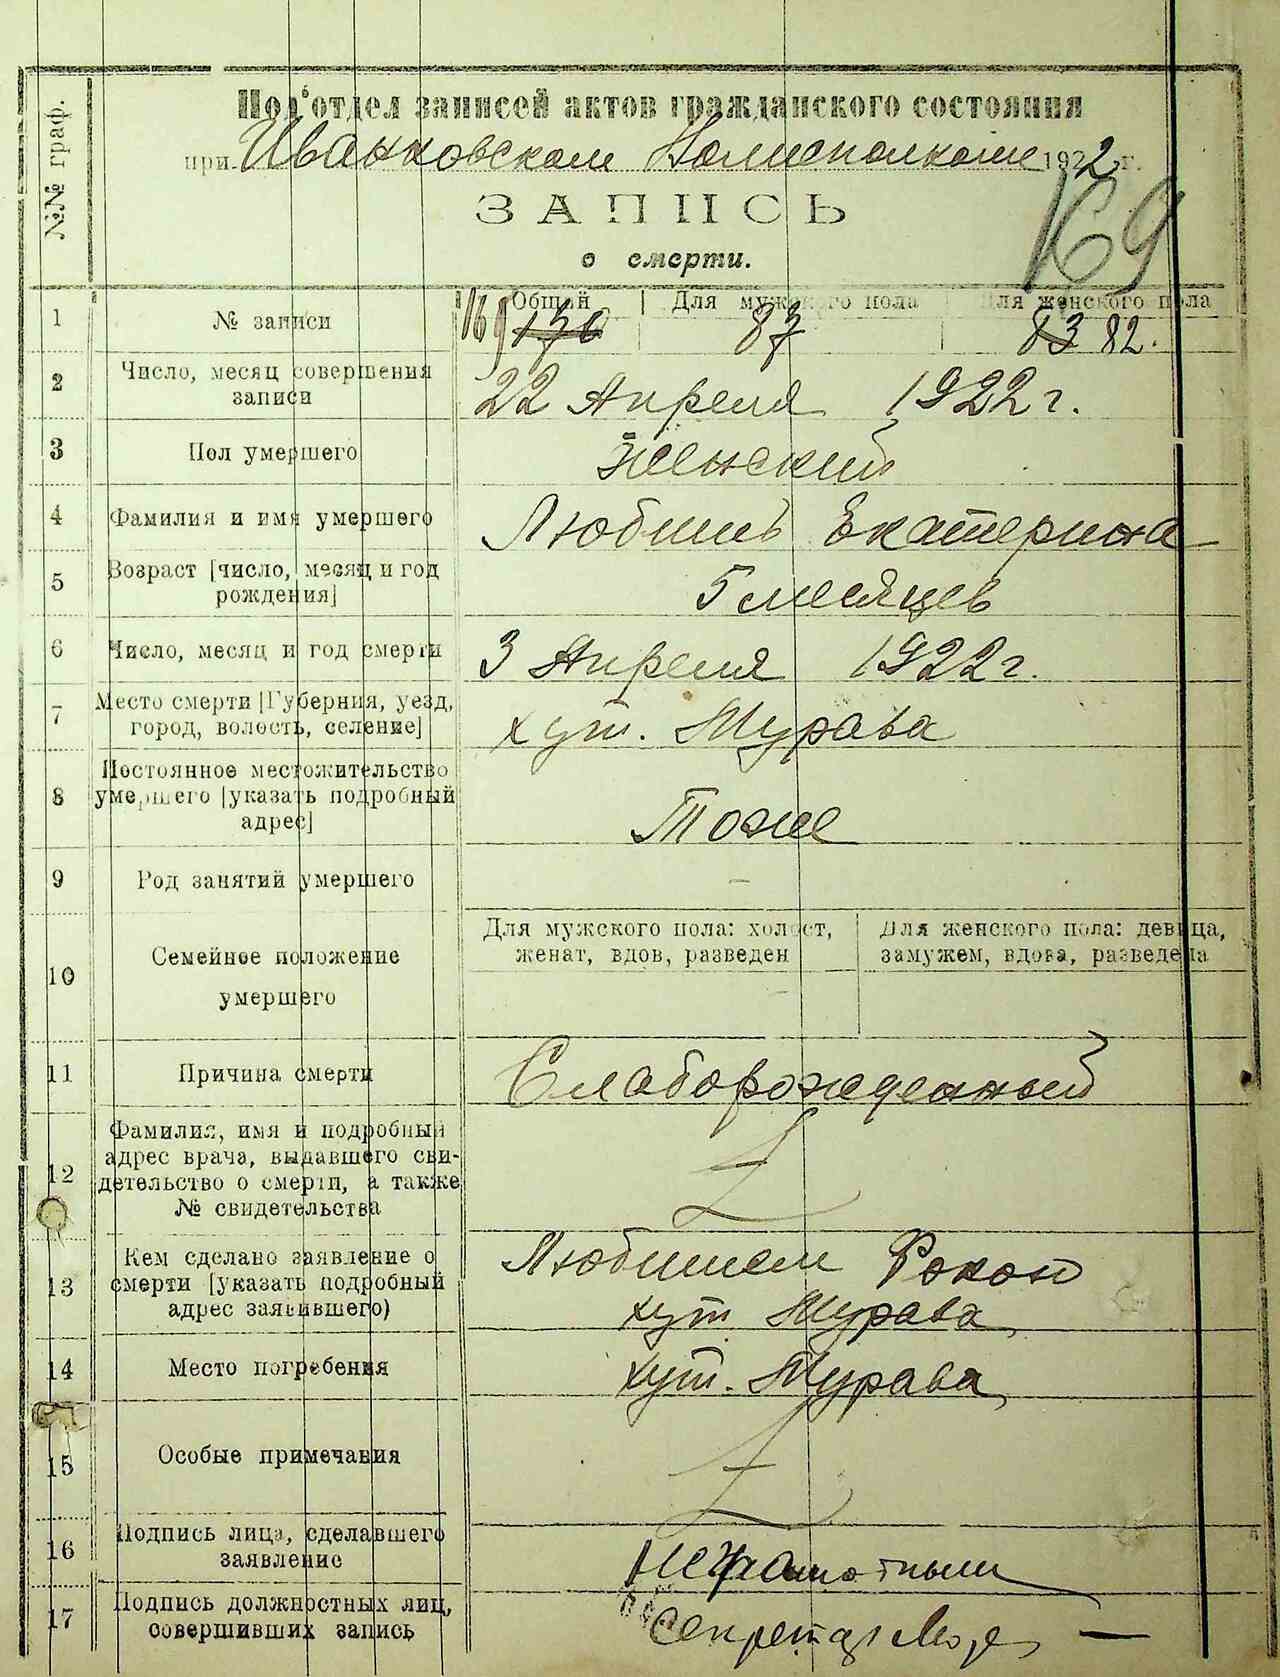 №№ граф.
Под'отдел записей актов гражданского состояния
при Иванковском Волисполкоме 1922 г.
169
ЗАПИСЬ
о смерти.
1 № записи
Общий Для мужского пола Для женского пола
169 170 87 83 82.
2 Число, месяц совершения
записи
22 Апреля 1922 г.
3 Пол умершего Женский
4 Фамилия и имя умершего Любишь Екатерина
5 Возраст [число, месяц и год
рождения]
5 месяцев
6 Число, месяц и год смерти 3 Апреля 1922 г.
7 Место смерти [Губерния, уезд,
город, волость, селение]
хут. Мурава
8 Постоянное местожительство
умершего [указать подробный
адрес]
Тоже
9 Род занятий умершего –
10 Семейное положение
умершего
Для мужского пола: холост,
женат, вдов, разведен
Для женского пола: девица,
замужем, вдова, разведена
11 Причина смерти Слаборожденный
12 Фамилия, имя и подробный
адрес врача, выдавшего сви-
детельство о смерти, а также
№ свидетельства
13 Кем сделано заявление о
смерти [указать подробный
адрес заявившего)
Любишем
хут Мурава
14 Место погребения хут. Мурава
15 Особые примечания
16 Подпись лица, сделавшего
заявление
Неграмотным
17 Подпись должностных лиц,
совершивших запись
Секретар